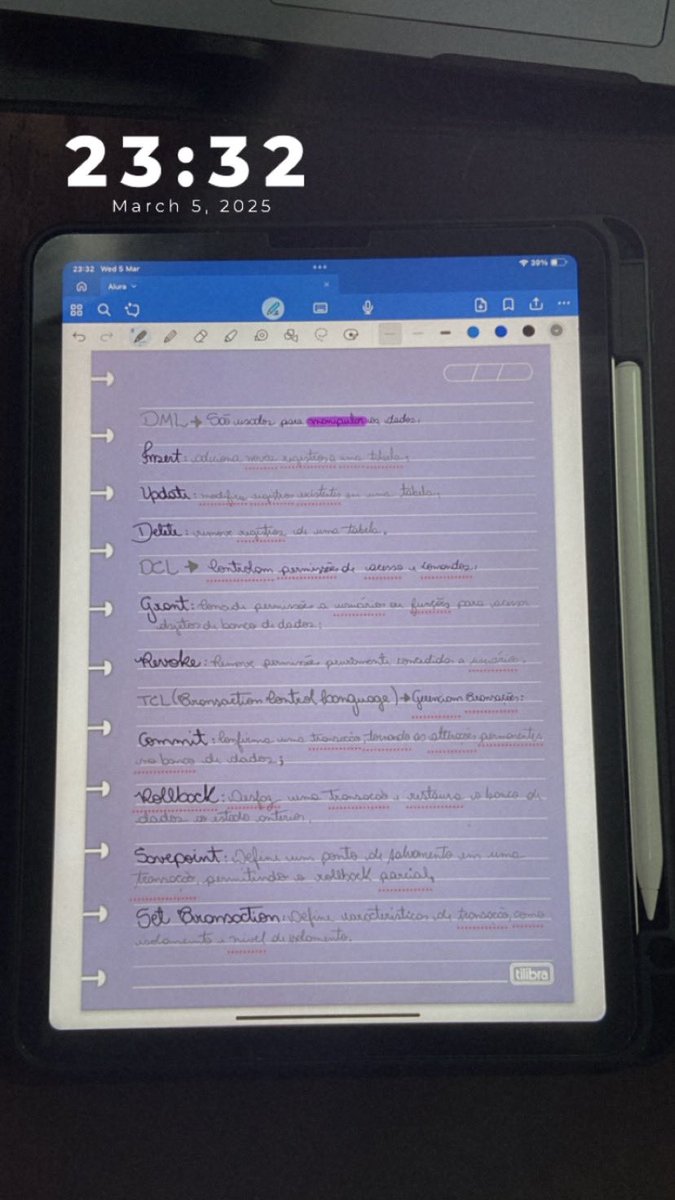 23:32
March 5, 2025
23:32 Wed 5 Mar
39%
Alura
DML → São usados para manipular os dados.
Insert: adiciona novos registros a uma tabela;
Update: modifica registros existentes em uma tabela;
Delete: remove registros de uma tabela.
DCL → Controlam permissões de acesso e comandos:
Grant: permissão a usuário ou funções para acessar
objetos de banco de dados;
Revoke: Remove permissão concedidas a usuários.
TCL (Transaction Control Language) → Gerenciam Transações:
Commit: Confirma uma transação, tornando as alterações permanentes
no banco de dados;
Rollback: Desfaz uma transação e restaura o banco de
dados ao estado anterior.
Savepoint: Define um ponto de salvamento em uma
transação, permitindo o rollback parcial.
Set Transaction: Define características de transação como
isolamento e nivel de isolamento.
tilibra